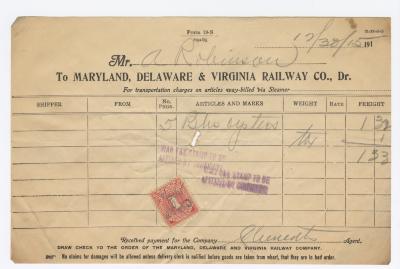 Form 19-S
12/30/15 191
Mr. A Robinson
To MARYLAND, DELAWARE & VIRGINIA RAILWAY CO., Dr.
For transportation charges on articles way-billed via Steamer
SHIPPER. FROM No. Pkgs. ARTICLES AND MARKS WEIGHT RATE FREIGHT
5 Bbls oysters 1 32
1
1 33
WAR TAX STAMP TO BE
AFFIXED BY CONSIGNEE
WAR TAX STAMP TO BE
AFFIXED BY CONSIGNEE
Received payment for the Company Agent.
DRAW CHECK TO THE ORDER OF THE MARYLAND, DELAWARE AND VIRGINIA RAILWAY COMPANY.
No claims for damages will be allowed unless delivery clerk is notified before goods are taken from wharf, that they are in bad order.